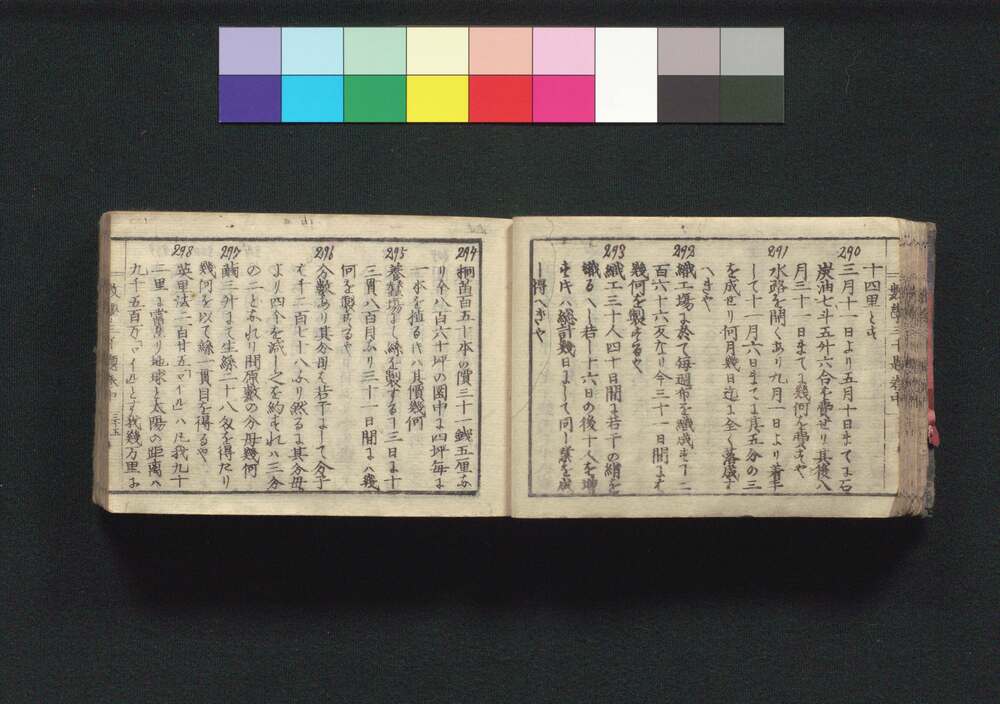 十四里とす
290
三月十一日より五月十日までに石
炭油七斗五升六合を費せり其後八
月三十一日までに幾何を費すや
291
水路を開くあり九月一日より着手
して十一月六日までに其五分の三
を成せり何月幾日迄に全く落成す
へきや
292
織工場に於て毎週布を織成す
百六十六反なり今三十一日間に
幾何を製するや
293
織工三十人四十日間に若干の絹を
織るへし若し十六日の後十人を増
すときハ總計幾日にして同し業を成
し得へきや
294
桐苗百五十本の價三十一錢五厘な
り今八百六十坪の園中に四坪毎に
一本を植るときハ其價幾何
295
養蠶場にて絲を製する三日に十
三貫八百目なり三十一日間にハ幾
何を製するや
296
分數あり其分母は若干にして分子
は千二百七十八なり然るに其分母
より四个を減し之を約すれハ三分
の二となれり問原數の分母幾何
297
繭三升にて生絲二十八匁を得たり
幾何を以て絲一貫目を得るや
298
英里法二百廿五「マイル」ハ凡我九十
二里に當れり地球と太陽の距離ハ
九千五百万「マイル」とす我幾万里な